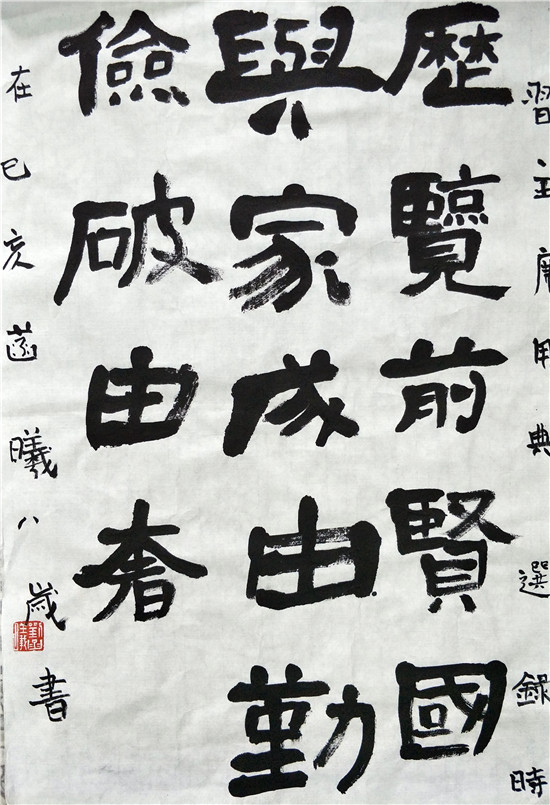 習主席用典選錄時
歷覽前賢國
與家成由勤
儉破由奢
在己亥菡曦八歲書